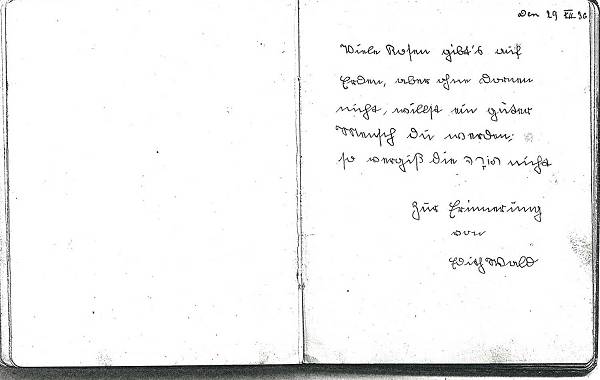 Den 29 XII. 36
Viele Rosen gibt's auf
Erden, aber ohne Dornen
nicht, willst ein guter
Mensch du werden,
so vergiß die תורה nicht
Zur Erinnerung
von
Edith Wald